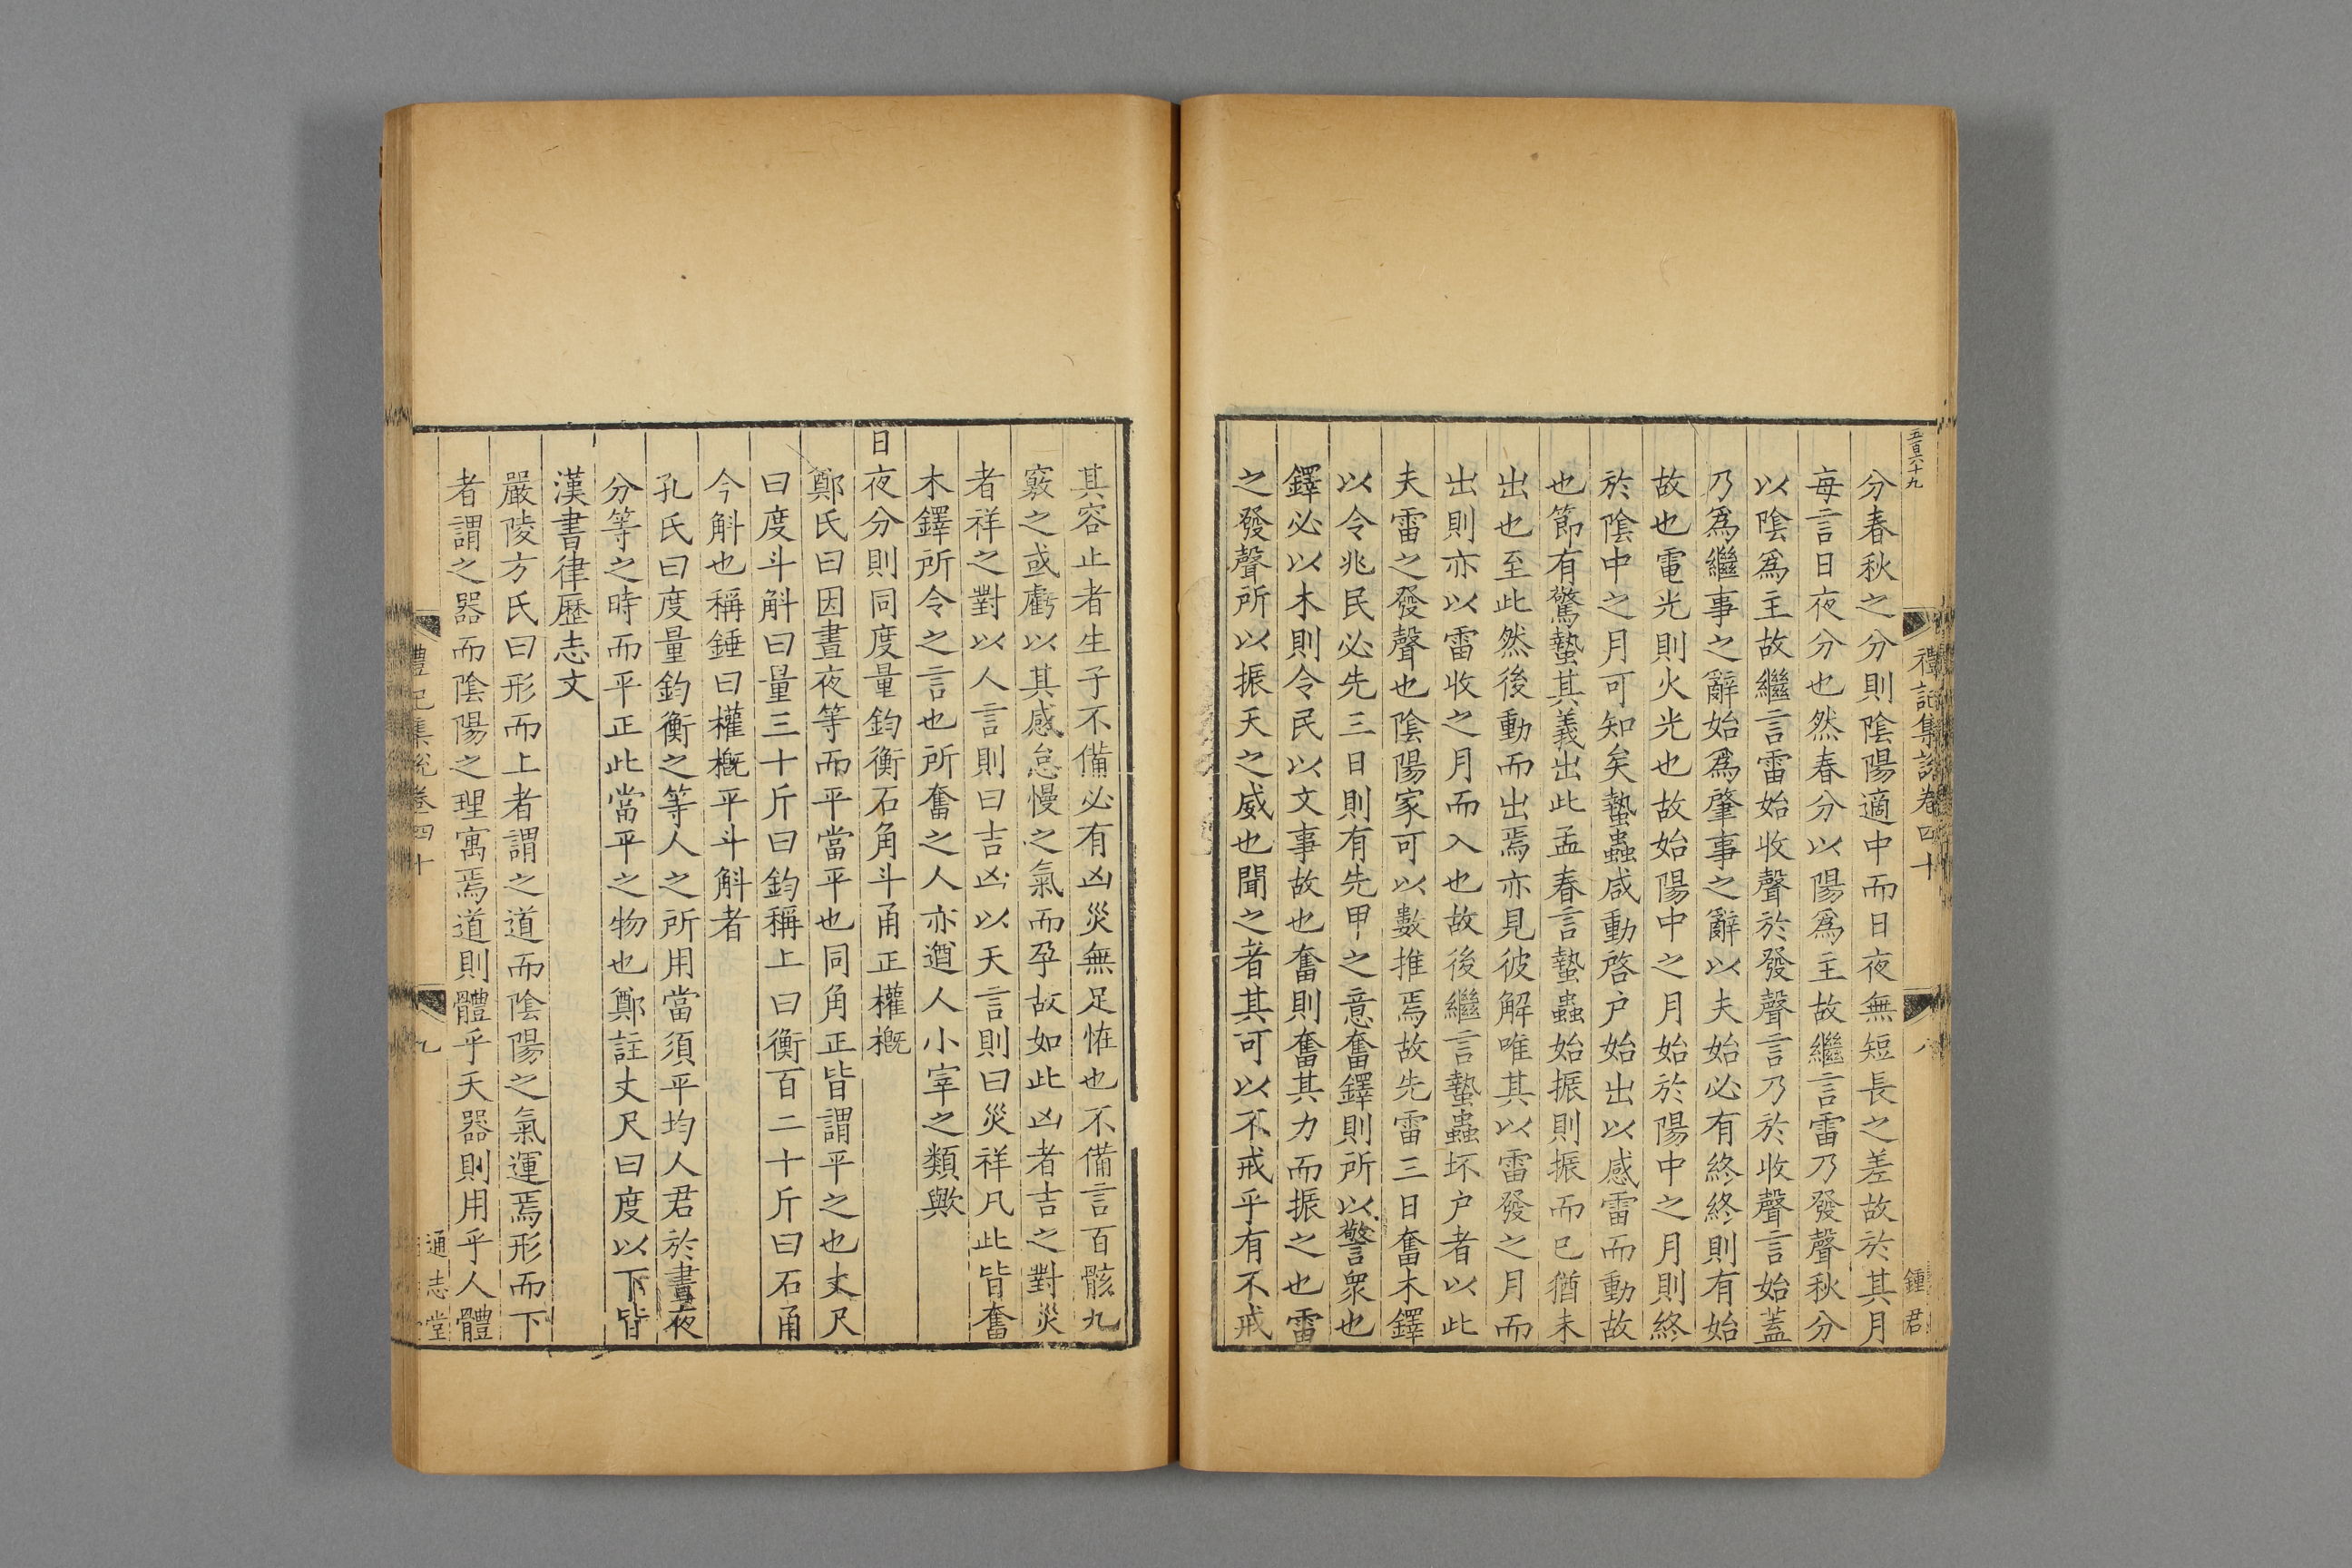 五百六十九
禮記集說卷四十
八
鍾君
分春秋之分則陰陽適中而日夜無短長之差故於其月
每言日夜分也然春分以陽爲主故繼言雷乃發聲秋分
以陰爲主故繼言雷始收聲於發聲言乃於收聲言始蓋
乃爲繼事之辭始爲肇事之辭以夫始必有終終則有始
故也電光則火光也故始陽中之月始於陽中之月則終
於陰中之月可知矣蟄蟲咸動啓戶始出以感雷而動故
也節有驚蟄其義出此孟春言蟄蟲始振則振而已猶未
出也至此然後動而出焉亦見彼解唯其以雷發之月而
出則亦以雷收之月而入也故後繼言蟄蟲坏戶者以此
夫雷之發聲也陰陽家可以數推焉故先雷三日奮木鐸
以令兆民必先三日則有先甲之意奮鐸則所以警衆也
鐸必以木則令民以文事故也奮則奮其力而振之也雷
之發聲所以振天之威也聞之者其可以不戒乎有不戒
其容止者生子不備必有凶災無足怪也不備言百骸九
竅之或虧以其感怠慢之氣而孕故如此凶者吉之對災
者祥之對以人言則曰吉凶以天言則曰災祥凡此皆奮
木鐸所令之言也所奮之人亦遒人小宰之類歟
日夜分則同度量鈞衡石角斗甬正權槪
鄭氏曰因晝夜等而平當平也同角正皆謂平之也丈尺
曰度斗斛曰量三十斤曰鈞稱上曰衡百二十斤曰石甬
今斛也稱錘曰權槪平斗斛者
孔氏曰度量鈞衡之等人之所用當須平均人君於晝夜
分等之時而平正此當平之物也鄭註丈尺曰度以下皆
漢書律歷志文
嚴陵方氏曰形而上者謂之道而陰陽之氣運焉形而下
者謂之器而陰陽之理寓焉道則體乎天器則用乎人體
禮記集說卷四十
九
通志堂